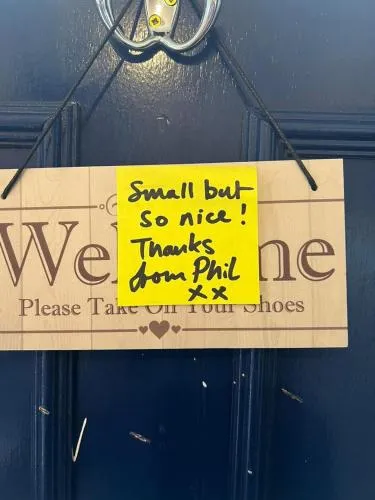 Small but
so nice!
Thanks
from Phil
xx
We me
Please Take Off Your Shoes